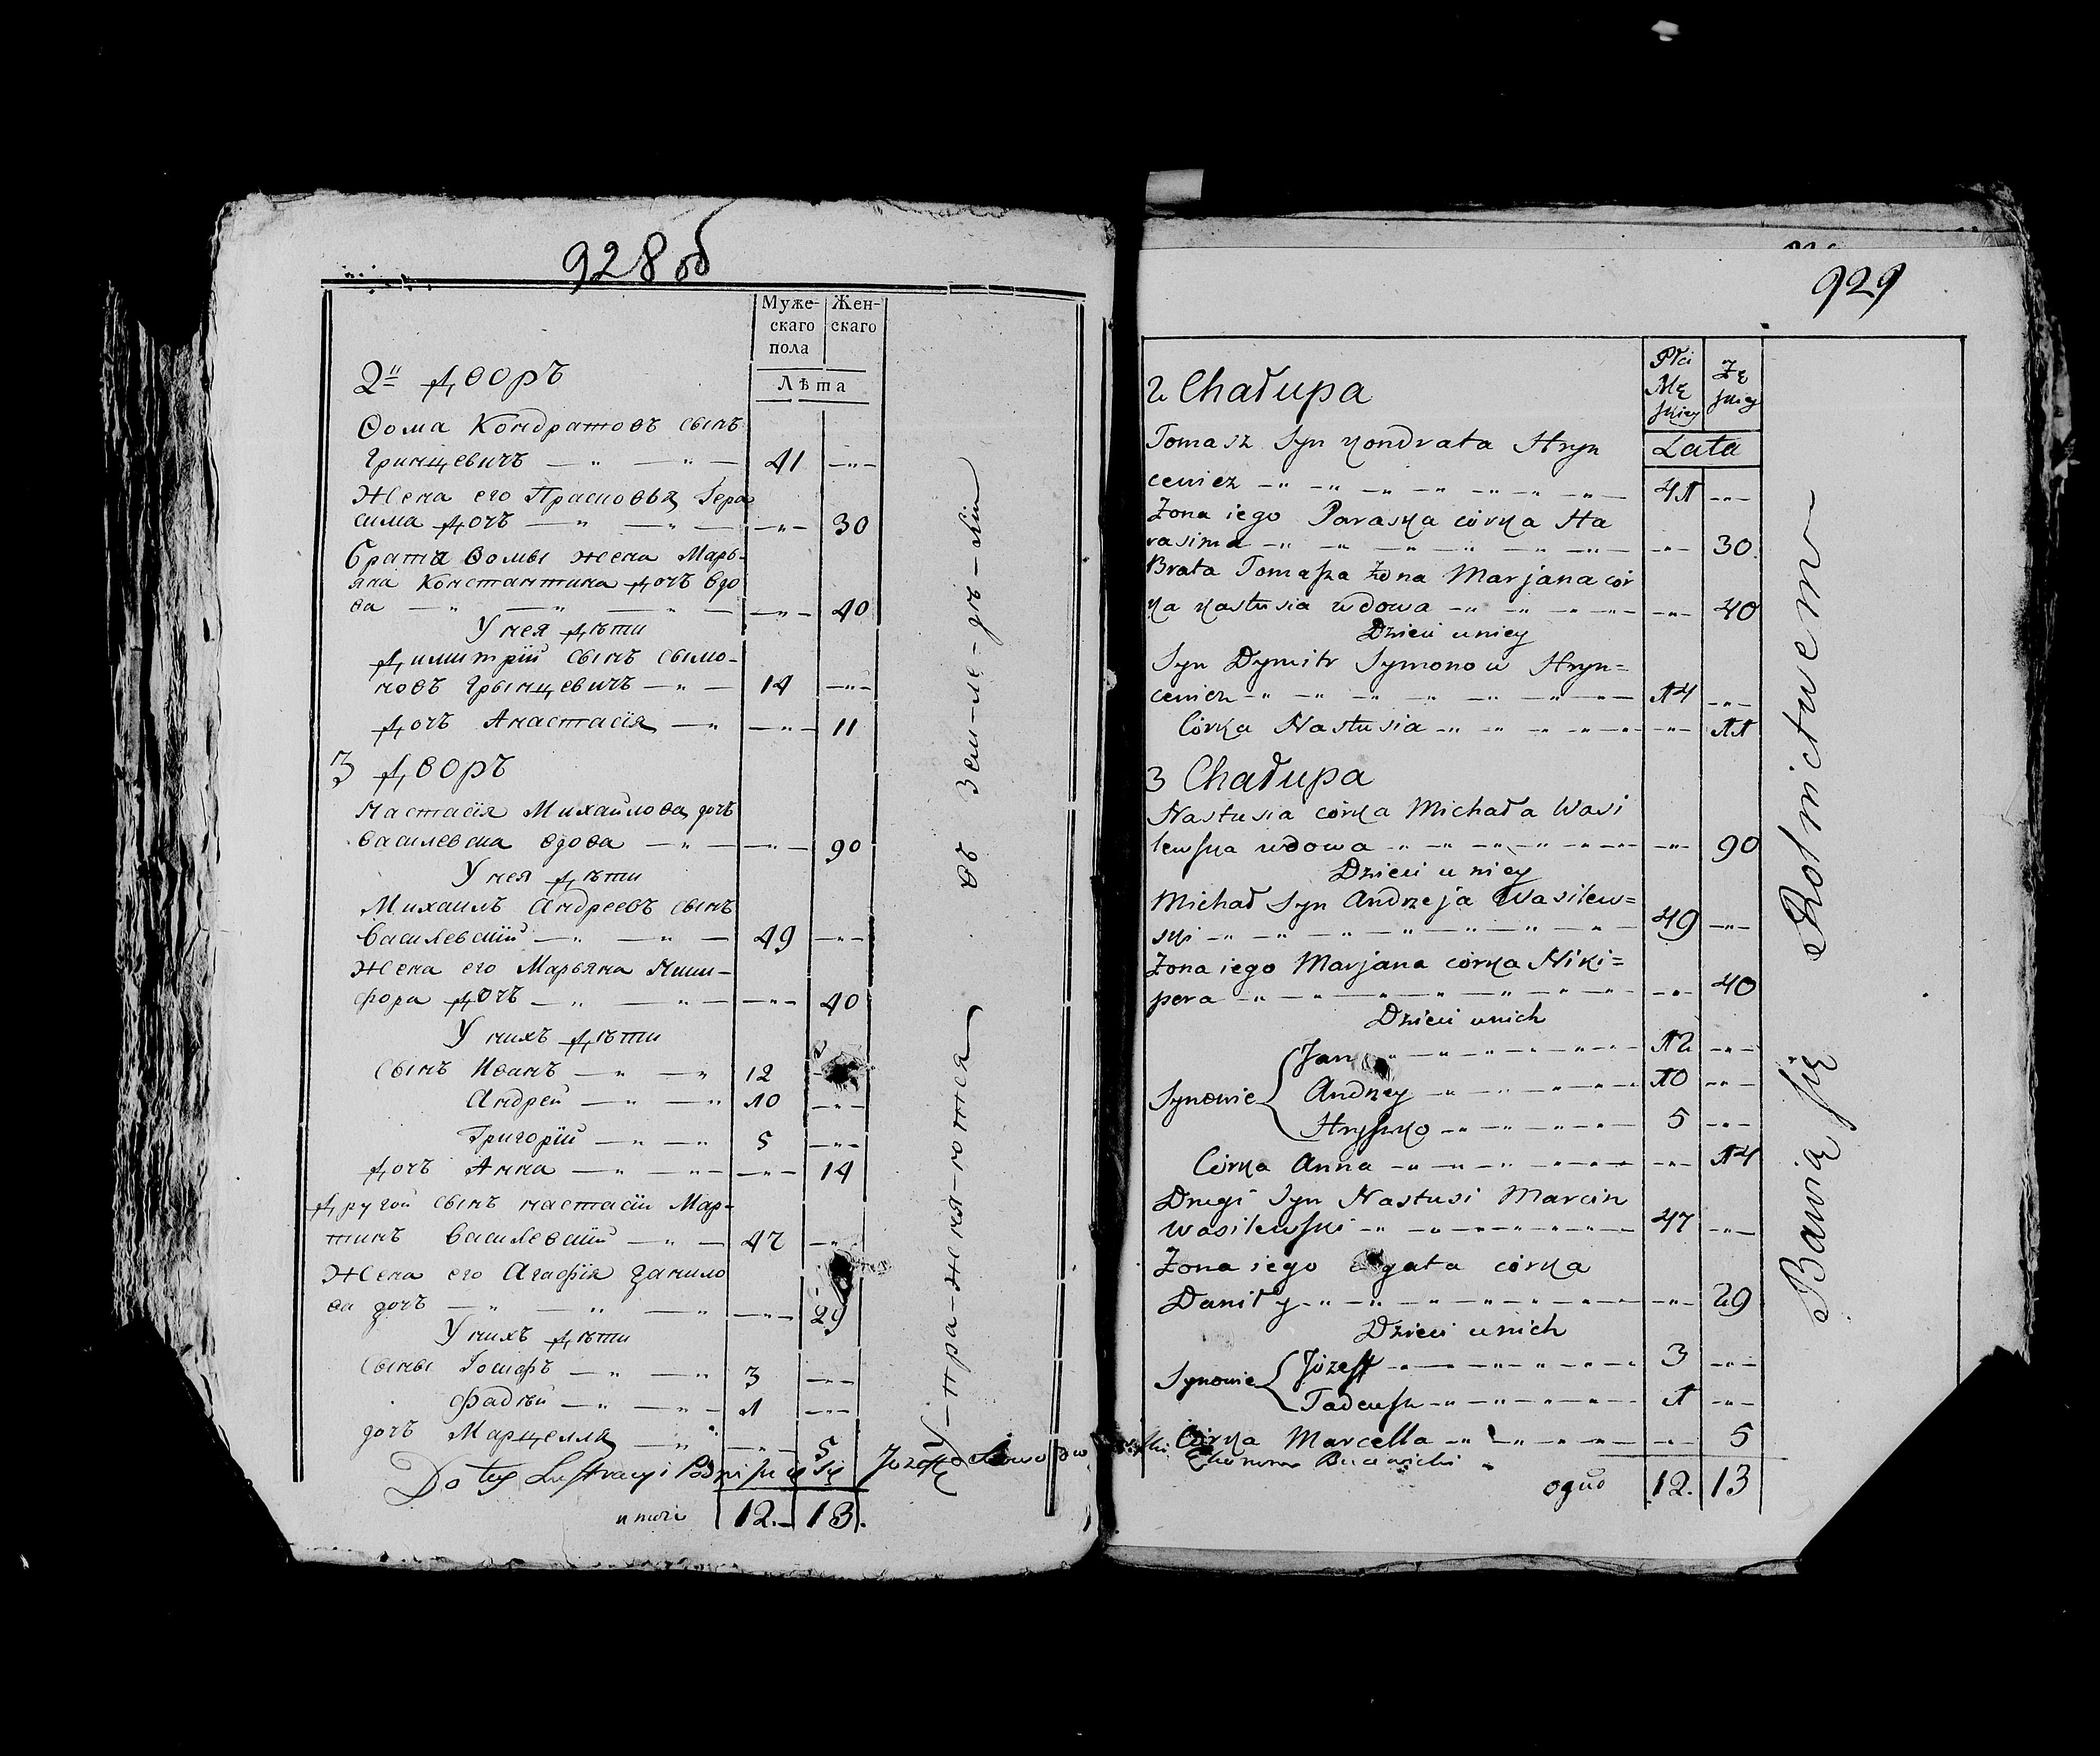 928 об
Муже-
скаго
пола
Жен-
скаго
Лѣта
2й Дворъ
Ѳома Кондратовъ сынъ
Гринцевичъ — " — " — 41 — " —
Жена его Прасковья Гера
сима дочъ — " — " — — " — 30
брата Ѳомы жена Марь-
яна Константина дочъ вдо
ва — " — " — " — — " — 40
У нея дѣти
Димитрій сынъ сымо-
новъ Грынцевичъ — " — 14 — " —
дочъ Анастасія — " — " — 11
3 Дворъ
Настасія Михайлова дочъ
Василевска вдова — " — — " — 90
У нея дѣти
Михаилъ Андреевъ сынъ
Василевскій — " — " — 49 — " —
Жена его Марьяна Ники-
фора дочъ — " — " — — " — 40
У нихъ дѣти
сынъ Иванъ — " — " 12
Андрей — " — " 10 — " —
Григорій — " — " 5 — " —
дочъ Анна — " — " — — " — 14
Другой сынъ настасіи Мар-
тинъ Василевскій — " — 47 — " —
Жена его Агафія данило
ва дочъ — " — " — " — " — 29
У нихъ дѣти
сыны Іосифъ — " — " 3 — " —
Фадѣй — " — " — 1 — " —
дочъ Марцелля — " — " — 5
Do tey Lustracyi Podpisuię się Jozeff
итого 12. 13.
У-пра-жня-ются въ Зем-ле-дѣ-ліи
929
Płci
Mę
skiey
Żę
skiey
Lata
2 Chałupa
Tomasz Syn Kondrata Hryn
cewicz - " - " - " - " - " - " - 41 - " -
Żona iego Paraska córka Ha
rasima - " - " - " - " - " - " - - " - 30.
Brata Tomasza żona Marjana cór
ka Kastusia wdowa - " - " - " - " - - " - 40
Dzieci u niey
Syn Dymitr Symonow Hryn=
cewicz - " - " - " - " - " - " - 14 - " -
Córka Nastusia - " - " - " - " - " - - " - 11
3 Chałupa
Nastusia córka Michała Wasi
lewska wdowa - " - " - " - " - " - - " - 90
Dzieci u niey
Michał Syn Andrzeja Wasilew=
ski - " - " - " - " - " - " - " - 49 - " -
Żona iego Marjana córka Niki=
pera - " - " - " - " - " - " - - " - 40
Dzieci u nich
Synowie
Jan - " - " - " - " - " - 12 - " -
Andrzey - " - " - " - " - 10 - " -
Hryszko - " - " - " - " - 5 - " -
Córka Anna - " - " - " - " - " - - " - 14
Drugi Syn Nastusi Marcin
Wasilewski - " - " - " - " - " - 47 - " -
Żona iego Agata córka
Daniły - " - " - " - " - " - " - - " - 29
Dzieci u nich
Synowie
Józeff - " - " - " - " - " - 3 - " -
Tadeusz - " - " - " - " - 1 - " -
Córka Marcella - " - " - " - " - - " - 5
Ekonom
oguł 12. 13
Bawią się Rolnictwem